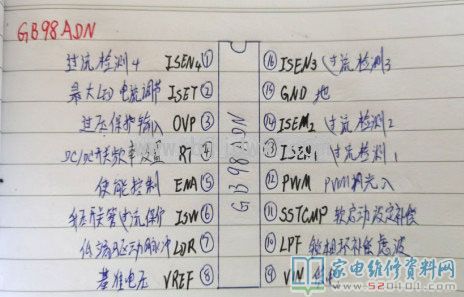 GB98ADN
过流检测4 ISEN4 ①
最大LED电流调节 ISET ②
过压保护输入 OVP ③
DC/DC开关频率设置 RT ④
使能控制 ENA ⑤
开关管电流保护 ISW ⑥
低端驱动脉冲 LDR ⑦
基准电压 VREF ⑧
GB98ADN
⑯ ISEN3 过流检测3
⑮ GND 地
⑭ ISEN2 过流检测2
⑬ ISEN1 过流检测1
⑫ PWM PWM调光入
⑪ SSTCMP 软启动设定补偿
⑩ LPF 锁相环补偿滤波
⑨ VIN
家电维修资料网
www.520101.com